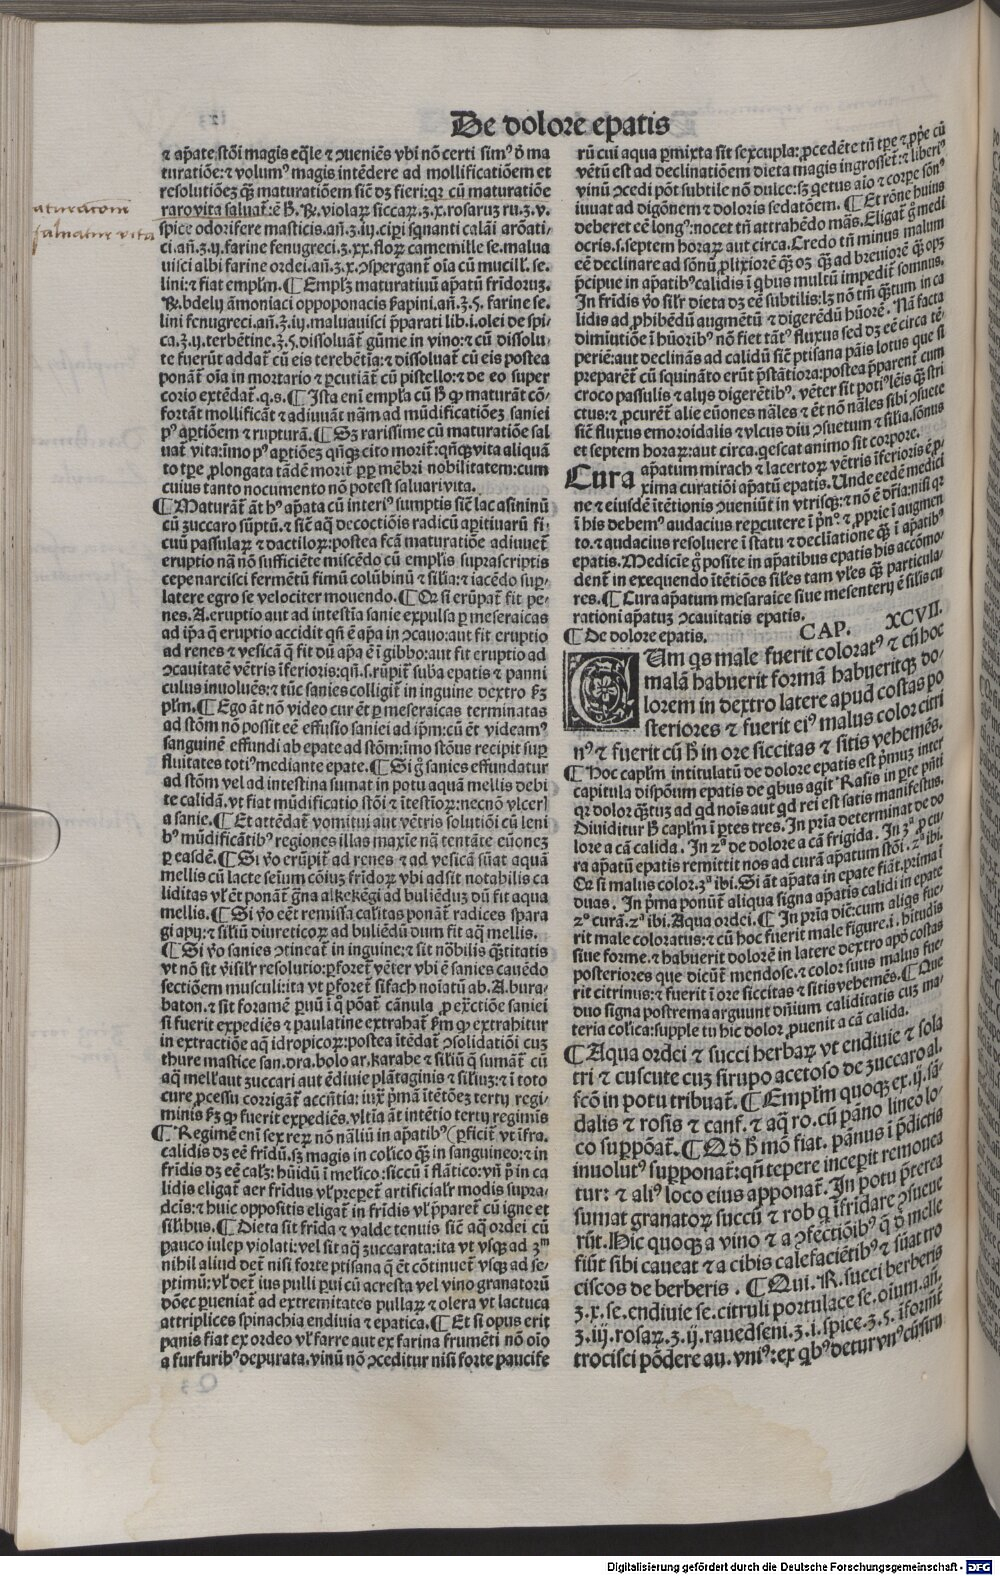 De dolore epatis
⁊ ap̃ate stõi magis eq̃le ⁊ ꝯueniẽs vbi nõ certi simꝰ ð ma
turatiõe: ⁊ volumꝰ magis intẽdere ad mollificatiõem et
resolutiõeʒ q̃ʒ maturatiõem siẽ dʒ fieri: qꝛ cũ maturatiõe
raro vita saluat̃: ẽ ħ. ℞. violaꝝ siccaꝝ.ʒ.x. rosaruʒ ru.ʒ.v.
aturacom̄
saluatur vita
spice odorifere masticis. añ.ʒ.iij. cip̱i sq̃nanti calãi arõati-
ci. añ.ʒ.ij. farine fenugreci.ʒ.xx. floꝝ camemille se. malua
uisci albi farine ordei. añ.ʒ.x. ꝯspergant̃ oĩa cũ mucill̃. se.
lini: ⁊ fiat empl̃m. ¶ Emplʒ maturatiuũ ap̃atũ fr̃idoruʒ.
℞. bdelij ãmoniaci oppoponacis s̃apini. añ.ʒ.5. farine se-
lini fenugreci. añ.ʒ.iij. maluauisci p̃parati lib.i. olei de spi-
ca.ʒ.ij. terbẽtine.ʒ.5. dissoluãt̃ gũme in vino: ⁊ cũ dissolu-
te fuerũt addat̃ cũ eis terebẽtĩa: ⁊ dissoluat̃ cũ eis postea
ponãt̃ oĩa in mortario ⁊ ꝑcutiãt̃ cũ pistello: ⁊ de eo super
corio extẽdat̃. q.s. ¶ Ista eni empl̃a cũ ħ ꝙ maturãt cõ-
fortãt mollificãt ⁊ adiuuãt nãm ad mũdificatiõeʒ saniei
pꝰ aꝑtiõem ⁊ rupturã. ¶ Sʒ rarissime cũ maturatiõe sal
uat̃ vita: ĩmo pꝰ aꝑtiõeʒ qñqʒ cito morit̃: qñqʒ vita aliquã
to tꝑe ꝓlongata tãdẽ morit̃ ꝓpt̃ mẽbri nobilitatem: cum
cuius tanto nocumento nõ potest saluari vita.
¶ Maturãt̃ ãt hꝰ ap̃ata cũ interiꝰ sumptis siẽ lac asininũ
cũ zuccaro sũptũ. ⁊ siẽ aq̃ decoctiõis radicũ aꝑitiuarũ fi-
cuũ passulaꝝ ⁊ dactiloꝝ: postea fcã maturatiõe adiuuet̃
eruptio nã nõ sufficiẽte miscẽdo cũ empl̃is suprascriptis
cepe narcisci fermẽtũ fimũ colũbinũ ⁊ sil̃ia: ⁊ iacẽdo suꝑ
latere egro se velociter mouendo. ¶ Qꝛ si erũpat̃ fit pe-
nes. A. eruptio aut ad intestĩa sanie expulsa ꝑ meseraicas
ad ip̃a q̃ eruptio accidit qñ ẽ ap̃a in ꝯcauo: aut fit eruptio
ad renes ⁊ vesicã q̃ fit dũ ap̃a ẽ ĩ gibbo: aut fit eruptio ad
ꝯcauitatẽ vẽtris ĩferioris: qñ.s. rũpit̃ suba epatis ⁊ panni
culus inuoluẽs: ⁊ tũc sanies colligit̃ in inguine dextro s̃ʒ
pl̃m. ¶ Ego ãt nõ video cur ẽt ꝑ meseraicas terminatas
ad stõm nõ possit eẽ effusio saniei ad ip̃m: cũ ẽt videamꝰ
sanguinẽ effundi ab epate ad stõm: ĩmo stõus recipit suꝑ
fluitates totiꝰ mediante epate. ¶ Si g̃ sanies effundatur
ad stõm vel ad intestina sumat in potu aquã mellis debi
te calidã. vt fiat mũdificatio stõi ⁊ ĩtestioꝝ: necnõ vlceꝝ
a sanie. ¶ Et attẽdat̃ vomitui aut vẽtris solutiõi cũ leni
bꝰ mũdificãtibꝰ regiones illas maxĩe nã tentãte eũoneʒ
ꝑ easdẽ. ¶ Si ṽo erũpit̃ ad renes ⁊ ad vesicã sũat aquã
mellis cũ lacte seĩum cõiuʒ fr̃idoꝝ vbi adsit notabilis ca
liditas vl̃ ẽt ponãt̃ g̃na alkekẽgi ad buliẽduʒ dũ fit aqua
mellis. ¶ Si ṽo eẽt remissa cal̃itas ponãt̃ radices spara
gi apij: ⁊ sil̃iũ diureticoꝝ ad buliẽdũ dum fit aq̃ mellis.
¶ Si ṽo sanies ꝯtineat̃ in inguine: ⁊ sit nõbilis q̃titatis
vt nõ sit ṽisil̃r resolutio: ꝑforet̃ vẽter vbi ẽ sanies cauẽdo
sectiõem musculi: ita vt ꝑforet̃ sifach noĩatũ ab. A. bura-
baton. ⁊ sit foramẽ ꝑuũ ĩ q̃ põat̃ cãnula ꝓ ex̃ctiõe saniei
si fuerit expediẽs ⁊ paulatine extrahat̃ s̃m ꝙ extrahitur
in extractiõe aq̃ idropicoꝝ: postea ĩtẽdat̃ ꝯsolidatiõi cuʒ
thure mastice san. dra. bolo ar. karabe ⁊ sil̃iũ q̃ sumãt̃ cũ
aq̃ mell̃ aut zuccari aut ẽdiuie plãtaginis ⁊ sil̃iuʒ: ⁊ ĩ toto
cure ꝓcessu corrigãt̃ accñtia: iux̃ p̃mã ĩtẽtõeʒ tertij regi-
minis s̃ʒ ꝙ fuerit expediẽs. vltĩa ãt intẽtio tertij regimĩs
¶ Regimẽ eni sex reꝝ nõ nãliũ in ap̃atibꝰ ꝑficit̃ vt ĩfra.
calidis dʒ eẽ fr̃idũ. sʒ magis in col̃ico q̃ʒ in sanguineo: ⁊ in
fr̃idis dʒ eẽ calʒ: hũidũ ĩ mel̃ico: siccũ ĩ fl̃atico: vñ p̃ in ca
lidis eligat̃ aer fr̃idus vl̃ p̃reꝑet̃ artificialr̃ modis supra-
dcĩs: ⁊ huic oppositis eligat̃ in fr̃idis vl̃ p̃paret̃ cũ igne et
sil̃ibus. ¶ Dieta sit fr̃ida ⁊ valde tenuis siẽ aq̃ ordei cũ
pauco iulep violati: vel sit aq̃ zuccarata: ita vt vsqʒ ad 3ᵐ
nihil aliud det̃ nisi forte ptisana q̃ ẽt cõtinuet̃ vsqʒ ad se-
ptimũ: vl̃ det̃ ius pulli pui cũ acresta vel vino granatorũ
dõec ꝑueniat̃ ad extremitates pullaꝝ ⁊ olera vt lactuca
attriplices spinachia endiuia ⁊ epatica. ¶ Et si opus erit
panis fiat ex ordeo vl̃ farre aut ex farina frumẽti nõ oĩo
a furfuribꝰ depurata. vinũ nõ ꝯceditur nisi forte paucisse
rũ cui aqua ꝑmixta sit sexcupla: ꝓcedẽte tñ tꝑe ⁊ ꝓpe cũ
vẽtũ est ad declinatiõem dieta magis ingrossiet̃: ⁊ liberiꝰ
vinũ ꝯcedi põt subtile nõ dulce: sʒ q̃etus aĩo ⁊ corpe sõnꝰ
iuuat ad digõnem ⁊ doloris sedatõem. ¶ Et rõne huius
deberet eẽ longꝰ: nocet tñ attrahẽdo mãs. Eligat̃ g̃ medi
ocris. s. septem horaꝝ aut circa. Credo tñ minus malum
eẽ declinare ad sõnũ ꝓlixiorẽ q̃ʒ oʒ q̃ʒ ad breuiorẽ q̃ʒ opʒ
p̃cipue in ap̃atibꝰ calidis ĩ qbus multũ impedit̃ somnus.
In fr̃idis ṽo sil̃r dieta dʒ eẽ subtilis: lʒ nõ tm̃ q̃tum in ca
lidis ad ꝓhibẽdũ augmẽtũ ⁊ digerẽdũ hũorẽ. Nã facta
dimiutiõe ĩ hũoribꝰ nõ fiet tãtꝰ fluxus sed dʒ eẽ circa tẽ-
periẽ: aut declinãs ad calidũ siẽ ptisana pãis lotus que si
preparẽt̃ cũ squinãto erũt p̃stãtiora: postea p̃parent̃ cum
croco passulis ⁊ alijs digerẽtibꝰ. vẽter sit potiꝰ lẽis q̃ʒ stri
ctus: ⁊ ꝓcurẽt̃ alie eũones nãles ⁊ ẽt nõ nãles sibi ꝯsuete
siẽ fluxus emoroidalis ⁊ vlcus diu ꝯsuetum ⁊ sil̃ia. sõnus
et septem horaꝝ: aut circa. q̃escat animo sit corpore.
Cura ap̃atum mirach ⁊ lacertoꝝ vẽtris ĩferioris ẽ ꝓ
xima curatiõi ap̃atũ epatis. Unde eedẽ medici
ne ⁊ eiusdẽ ĩtẽtionis ꝯueniũt in vtrisqʒ: ⁊ nõ ẽ dr̃ia: nisi qꝛ
ĩ his debemꝰ audacius reꝑcutere ĩ p̃nº. ⁊ ꝓprie ĩ augmen
to. ⁊ audacius resoluere ĩ statu ⁊ decl̃atione q̃ʒ ĩ ap̃atibꝰ
epatis. Medicĩe g̃ posite in ap̃atibus epatis his accõmo-
dent̃ in exequendo ĩtẽtiões sil̃es tam vl̃es q̃ʒ particula-
res. ¶ Cura ap̃atum mesaraice siue mesenterij ẽ sil̃is cu
rationi ap̃atuʒ ꝯcauitatis epatis.
¶ De dolore epatis. CAP. XCVII.
CUm qs male fuerit coloratꝰ ⁊ cũ hoc
malã habuerit formã habueritqʒ do-
lorem in dextro latere apud costas po
steriores ⁊ fuerit eiꝰ malus color citri
nꝰ ⁊ fuerit cũ ħ in ore siccitas ⁊ sitis vehemẽs.
¶ Hoc capl̃m intitulatũ de dolore epatis est p̃muʒ inter
capitula dispõnum epatis de qbus agit Rasis in ꝑte p̃nti
qꝛ dolor q̃tuʒ ad qd noĩs aut qd rei est satis manifestus.
Diuiditur ħ capl̃m ĩ ꝑtes tres. In pr̃ia determinat de do
lore a cã calida. In 2ª de dolore a cã frigida. In 3ª ꝓ cu
ra ap̃atũ epatis remittit nos ad curã ap̃atum stõi. 2ª ibi.
Qꝛ si malus color. 3ª ibi. Si ãt ap̃ata in epate fiãt. prima ĩ
duas. In p̃ma ponũt̃ aliqua signa ap̃atis calidi in epate
2º curã. 2ª ibi. Aqua ordei. ¶ In pr̃ia dic̃: cum aliqs fue-
rit male coloratus: ⁊ cũ hoc fuerit male figure. i. hĩtudis
siue forme. ⁊ habuerit dolorẽ in latere dextro apð costas
posteriores que dicũt̃ mendose. ⁊ color suus malus fue-
rit citrinus: ⁊ fuerit ĩ ore siccitas ⁊ sitis vehemẽs. ¶ Que
duo signa postrema arguunt dñium caliditatis cuʒ ma-
teria col̃ica: supple tu hic dolor ꝓuenit a cã calida.
¶ Aqua ordei ⁊ succi herbaꝝ vt endiuie ⁊ sola
tri ⁊ cuscute cuʒ sirupo acetoso de zuccaro al.
fcõ in potu tribuat̃. ¶ Empl̃m quoqʒ ex. ij. sã-
dalis ⁊ rosis ⁊ canf. ⁊ aq̃ ro. cũ pãno lineo lo-
co suppõat̃. ¶ Qð ħ mõ fiat. pãnus ĩ p̃dictis
inuolutꝰ supponat̃: qñ tepere inceperit remouea
tur: ⁊ aliꝰ loco eius apponat̃. In potu p̃terea
sumat granatoꝝ succũ ⁊ rob q̃ ĩfridare ꝯsueue
rũt. Hic quoqʒ a vino ⁊ a ꝯfectiõibꝰ q̃ ð melle
fiũt sibi caueat ⁊ a cibis calefaciẽtibꝰ ⁊ sũat tro
ciscos de berberis. ¶ Qui. ℞. succi berberis
ʒ.x. se. endiuie se. citruli portulace se. oium. añ.
ʒ.iij. rosaꝝ.ʒ.ij. rauedseni.ʒ.i. spice.ʒ.5. ĩformẽt̃
trocisci põdere au. vniꝰ: ex qbꝰ detur vnꝰ cũ siru
Digitalisierung gefördert durch die Deutsche Forschungsgemeinschaft - DFG